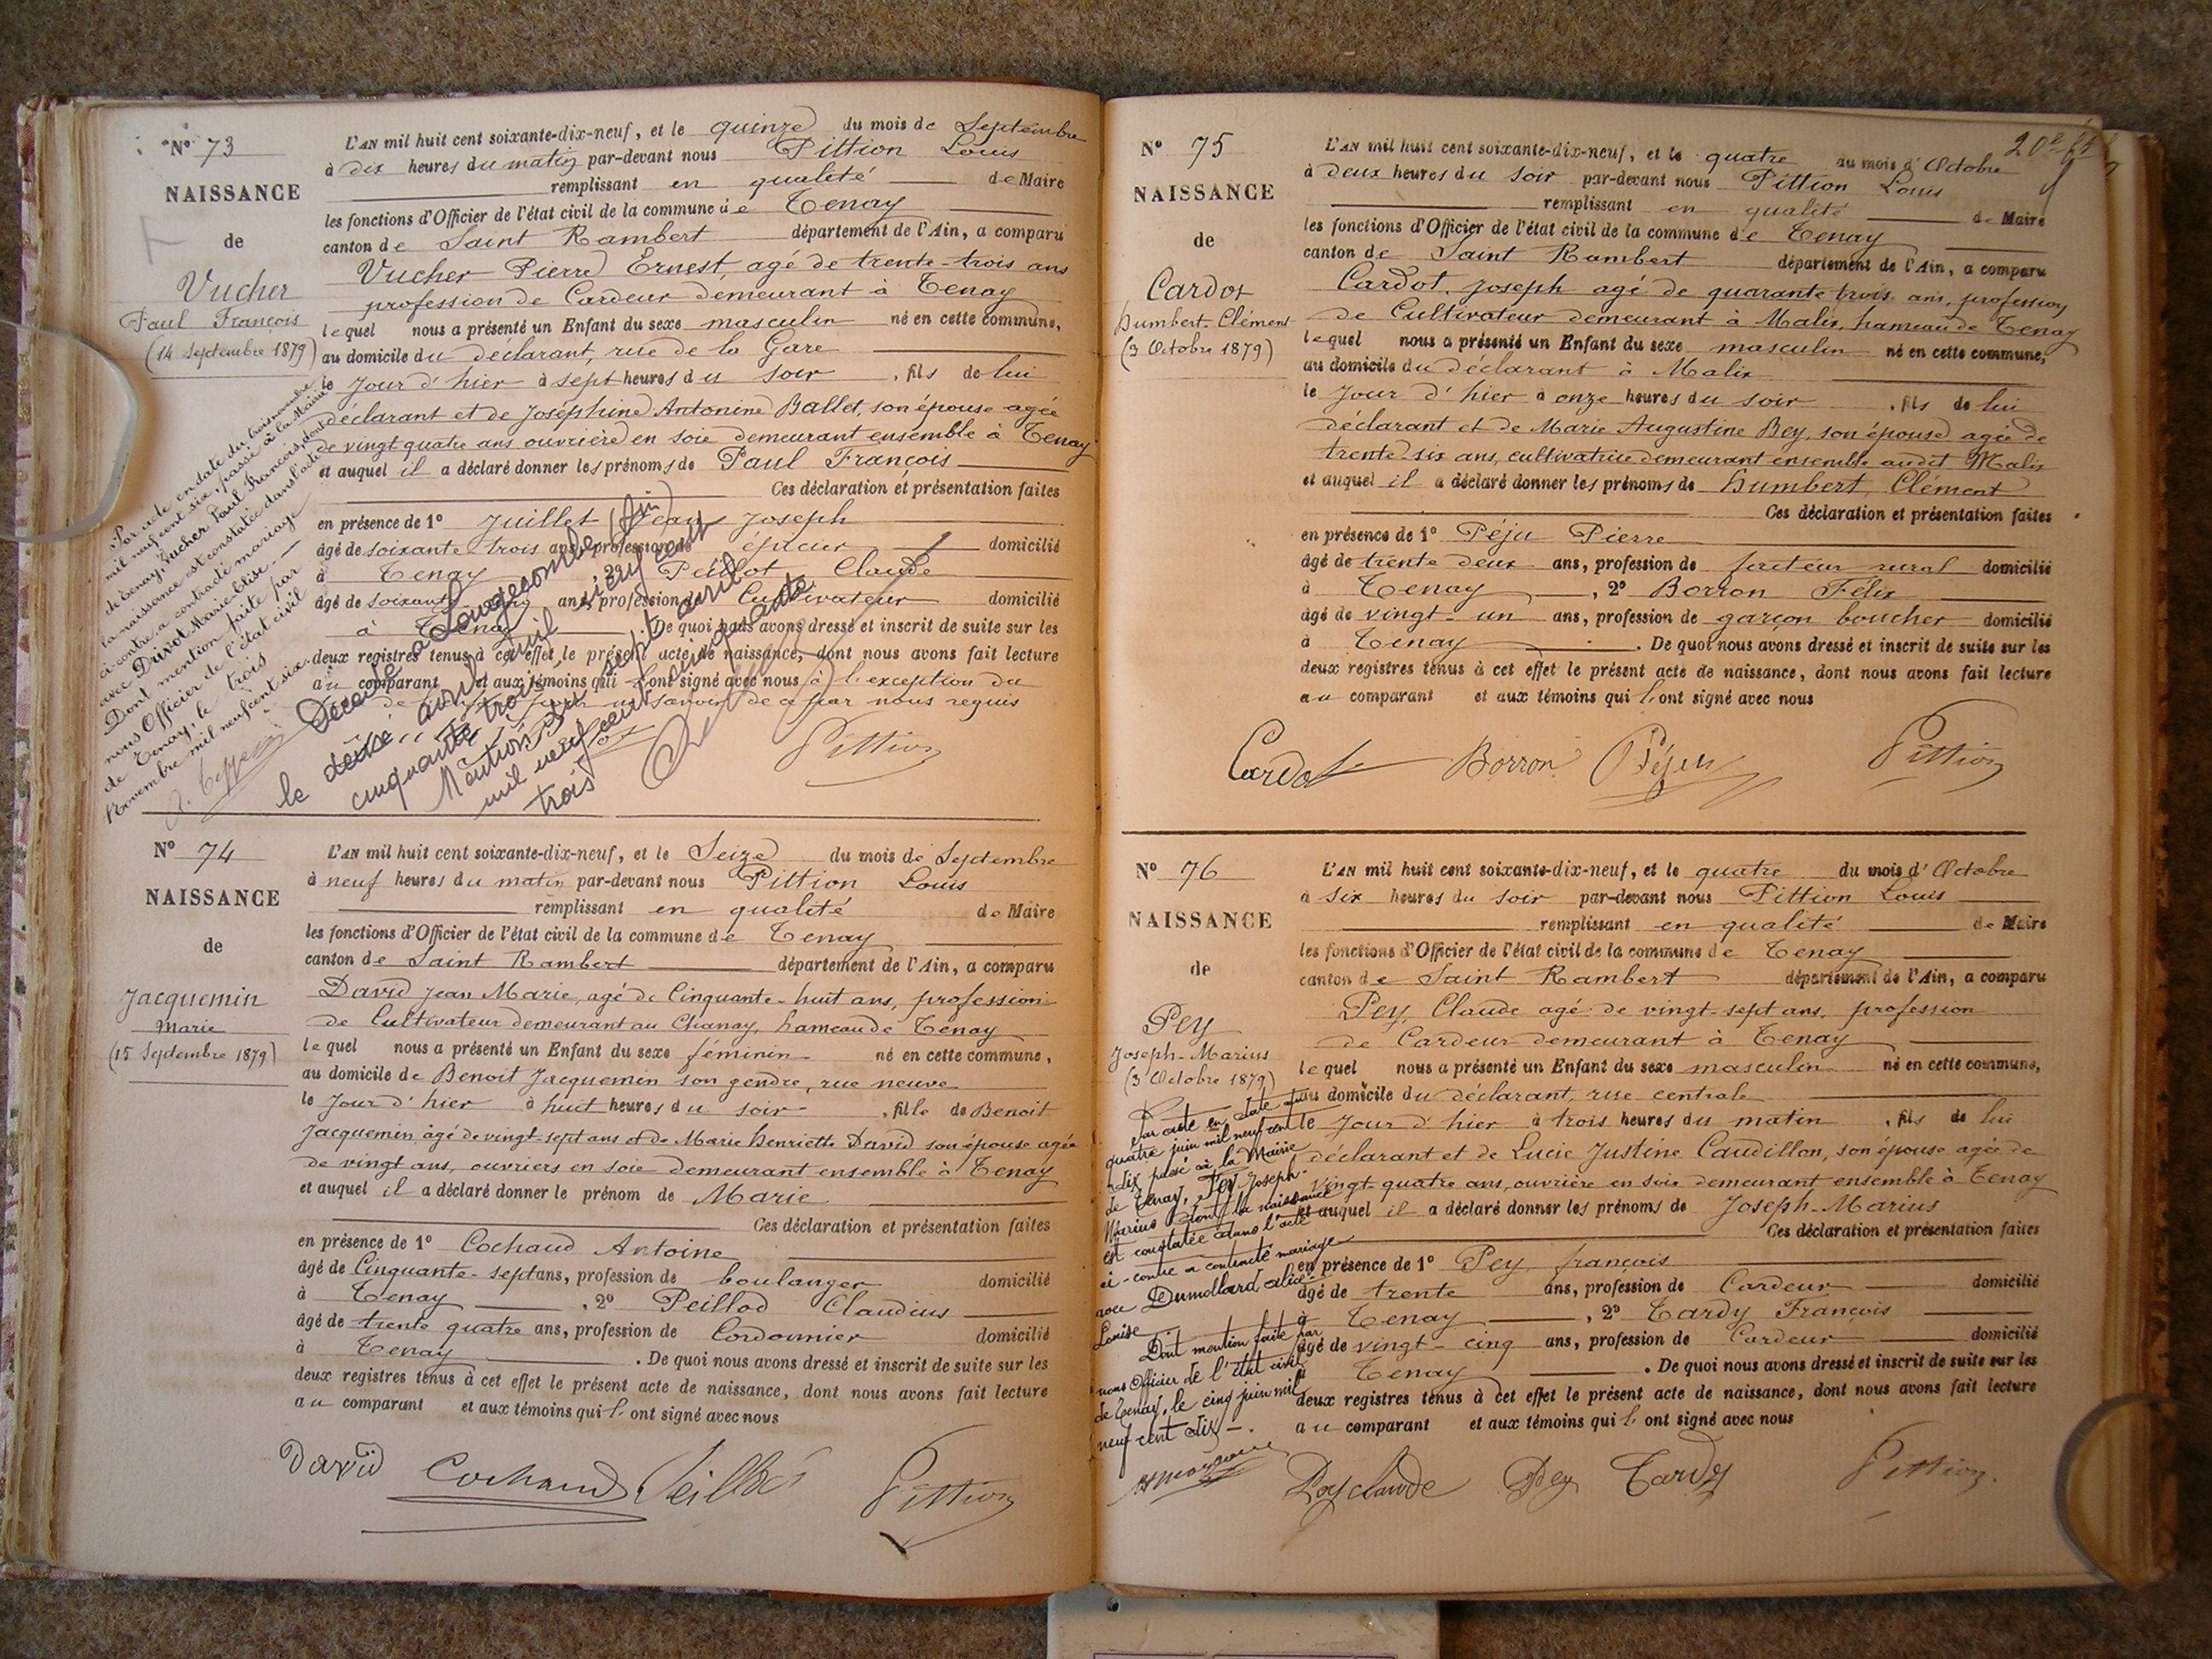 N° 73
NAISSANCE
de
Vucher
Paul François
(14 Septembre 1879)
L'AN mil huit cent soixante-dix-neuf, et le quinze du mois de Septembre
à dix heures du matin par-devant nous Pittion Louis
remplissant en qualité de Maire
les fonctions d'Officier de l'état civil de la commune de Tenay
canton de Saint Rambert département de l'Ain, a comparu
Vucher Pierre Ernest, agé de trente-trois ans
profession de Cardeur demeurant à Tenay
lequel nous a présenté un Enfant du sexe masculin né en cette commune,
au domicile du déclarant, rue de la Gare
le jour d'hier à sept heures du soir, fils de lui
déclarant et de Joséphine Antonine Ballet, son épouse agée
de vingt quatre ans ouvrière en soie demeurant ensemble à Tenay
et auquel il a déclaré donner les prénoms de Paul François
Ces déclaration et présentation faites
en présence de 1° Juillet Jean Joseph
âgé de soixante trois ans, profession de épicier domicilié
à Tenay, 2° Peillot Claude
âgé de soixante ans, profession de Cultivateur domicilié
à Tenay De quoi nous avons dressé et inscrit de suite sur les
deux registres tenus à cet effet le présent acte de naissance, dont nous avons fait lecture
au comparant et aux témoins qui l'ont signé avec nous à l'exception du
savoir de ce par nous requis
Pittion
Par acte en date du trois novembre
mil neuf cent six, passé à la Mairie
de Tenay, Vucher Paul François, dont
la naissance est constatée dans l'acte
ci-contre, a contracté mariage
avec Drivot Marie Elise.—
Dont mention faite par
nous Officier de l'état civil
de Tenay, le trois
Novembre mil neuf cent six.
Décédé à Longecombe (Ain)
le deux avril mil neuf cent
cinquante trois
Mention Par avril
mil neuf cent cinquante
trois
N° 74
NAISSANCE
de
Jacquemin
Marie
(15 Septembre 1879)
L'AN mil huit cent soixante-dix-neuf, et le Seize du mois de Septembre
à neuf heures du matin par-devant nous Pittion Louis
remplissant en qualité de Maire
les fonctions d'Officier de l'état civil de la commune de Tenay
canton de Saint Rambert département de l'Ain, a comparu
David Jean Marie, agé de Cinquante-huit ans, profession
de Cultivateur demeurant au Chanay, hameau de Tenay
lequel nous a présenté un Enfant du sexe féminin né en cette commune,
au domicile de Benoit Jacquemin son gendre, rue neuve
le Jour d'hier à huit heures du soir, fille de Benoit
Jacquemin, âgé de vingt-sept ans et de Marie Henriette David son épouse agée
de vingt ans, ouvriers en soie demeurant ensemble à Tenay
et auquel il a déclaré donner le prénom de Marie
Ces déclaration et présentation faites
en présence de 1° Cochaud Antoine
âgé de Cinquante-sept ans, profession de boulanger domicilié
à Tenay, 2° Peillod Claudius
âgé de trente quatre ans, profession de Cordonnier domicilié
à Tenay. De quoi nous avons dressé et inscrit de suite sur les
deux registres tenus à cet effet le présent acte de naissance, dont nous avons fait lecture
au comparant et aux témoins qui l'ont signé avec nous
David Cochaud Peillod Pittion
N° 75
NAISSANCE
de
Cardot
humbert-Clément
(3 Octobre 1879)
L'AN mil huit cent soixante-dix-neuf, et le quatre du mois d'Octobre
à deux heures du soir par-devant nous Pittion Louis
remplissant en qualité de Maire
les fonctions d'Officier de l'état civil de la commune de Tenay
canton de Saint Rambert département de l'Ain, a comparu
Cardot, joseph agé de quarante trois ans, profession
de Cultivateur demeurant à Malix, hameau de Tenay
lequel nous a présenté un Enfant du sexe masculin né en cette commune,
au domicile du déclarant à Malix
le Jour d'hier à onze heures du soir, fils de lui
déclarant et de Marie Augustine Bey, son épouse agée de
trente-six ans, cultivatrice demeurant ensemble audit Malix
et auquel il a déclaré donner les prénoms de humbert, Clément
Ces déclaration et présentation faites
en présence de 1° Péju Pierre
âgé de trente deux ans, profession de facteur rural domicilié
à Tenay, 2° Borron Félix
âgé de vingt-un ans, profession de garçon boucher domicilié
à Tenay. De quoi nous avons dressé et inscrit de suite sur les
deux registres tenus à cet effet le présent acte de naissance, dont nous avons fait lecture
au comparant et aux témoins qui l'ont signé avec nous
Cardot Borron Péju Pittion
N° 76
NAISSANCE
de
Pey
Joseph-Marius
(3 Octobre 1879)
L'AN mil huit cent soixante-dix-neuf, et le quatre du mois d'Octobre
à six heures du soir par-devant nous Pittion Louis
remplissant en qualité de Maire
les fonctions d'Officier de l'état civil de la commune de Tenay
canton de Saint Rambert département de l'Ain, a comparu
Pey Claude agé de vingt-sept ans, profession
de Cardeur demeurant à Tenay
lequel nous a présenté un Enfant du sexe masculin né en cette commune,
au domicile du déclarant, rue centrale
le Jour d'hier à trois heures du matin, fils de lui
déclarant et de Lucie Justine Caudillon, son épouse agée de
vingt-quatre ans, ouvrière en soie demeurant ensemble à Tenay
et auquel il a déclaré donner les prénoms de Joseph-Marius
Ces déclaration et présentation faites
en présence de 1° Pey, françois
âgé de trente ans, profession de Cardeur domicilié
à Tenay, 2° Tardy François
âgé de vingt-cinq ans, profession de Cardeur domicilié
à Tenay. De quoi nous avons dressé et inscrit de suite sur les
deux registres tenus à cet effet le présent acte de naissance, dont nous avons fait lecture
au comparant et aux témoins qui l'ont signé avec nous
Pey claude Pey Tardy Pittion
Par acte en date du
quatre juin mil neuf cent
dix passé à la Mairie
de Tenay, Pey Joseph-
Marius dont la naissance
est constatée dans l'acte
ci-contre a contracté mariage
avec Dumollard Alice
Louise
Dont mention faite par
nous Officier de l'état civil
de Tenay, le cinq juin mil
neuf cent dix —.